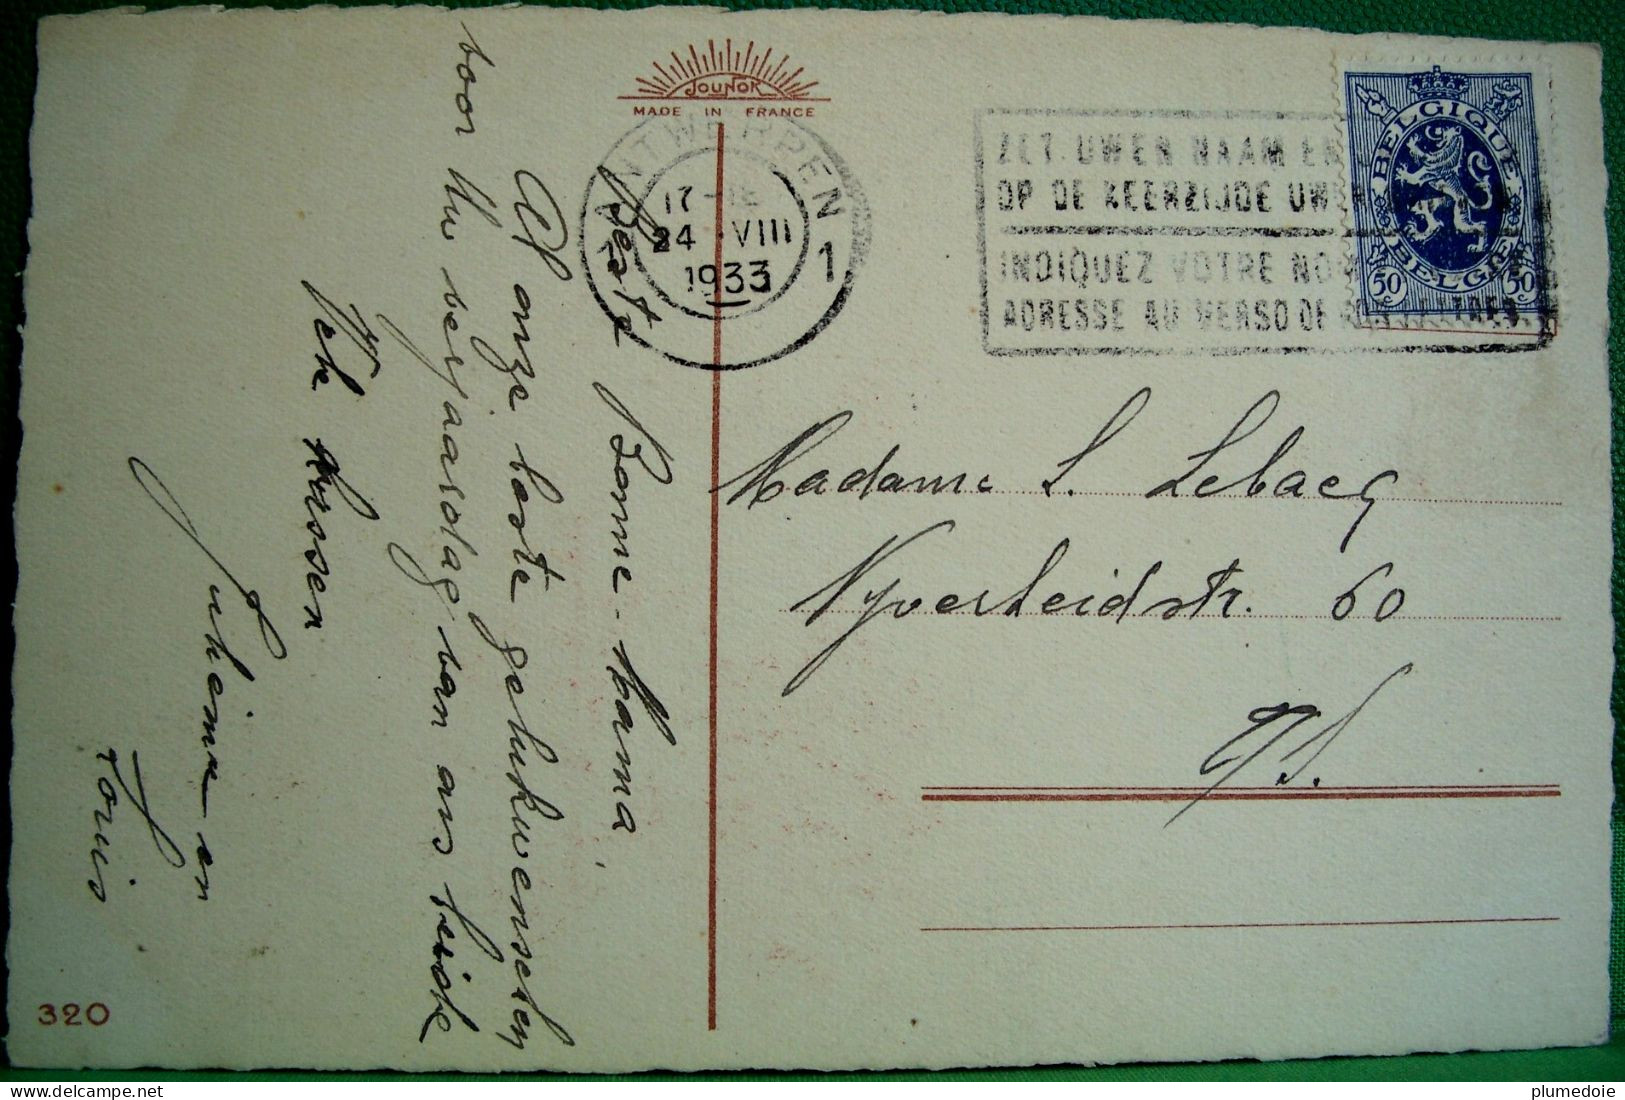 JOUNOK
MADE IN FRANCE
ANTWERPEN 1
17-18
24 VIII
1933
ZET UWEN NAAM EN
OP DE KEERZIJDE UWER
INDIQUEZ VOTRE NOM
ADRESSE AU VERSO DE VOS LETTRES
BELGIQUE
BELGIË
50 c
50 c
Beste Bonne-Mama,
Al onze beste gelukwenschen
voor Uw verjaardag van ons beide
Vele Kussen
en
Louis
Madame L. Lebacq
Nyverheidstr. 60
320
plumedoie